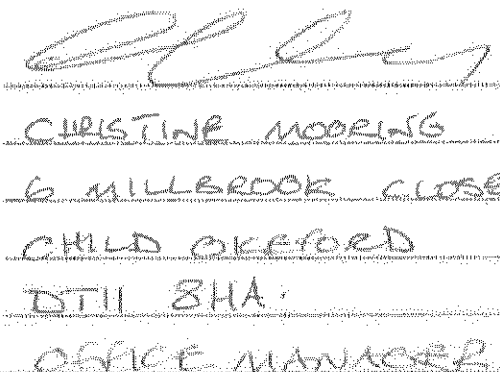 CHRISTINE MOORING
6 MILLBROOK CLOSE
CHILD OKEFORD
DT11 8HA.
OFFICE MANAGER